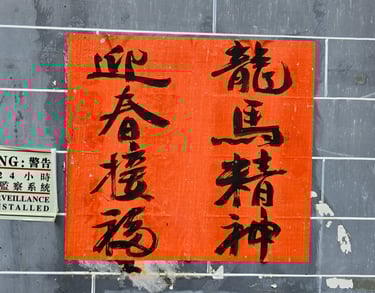 龍馬精神
迎春接福
NG: 警告
24小時
監察系統
RVEILLANCE
NSTALLED